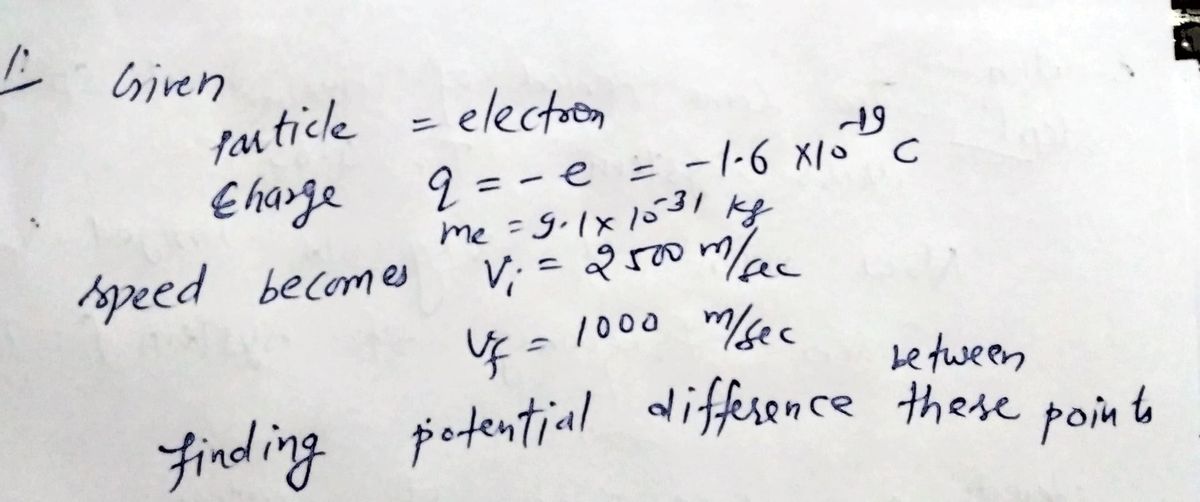 1: Given
particle = electron
Charge q = - e = - 1.6 x10^-19 C
me = 9.1 x 10^-31 kg
speed becomes Vi = 2500 m/sec
Vf = 1000 m/sec
between
finding potential difference these points